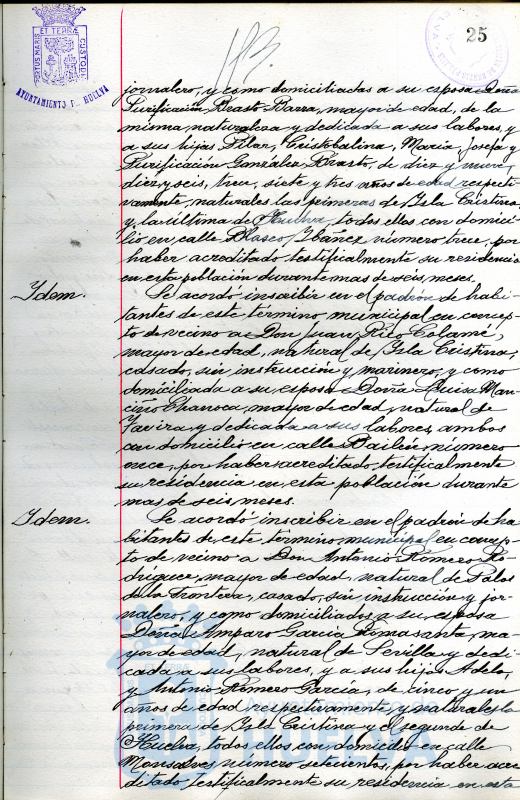 PORTUS MARIS ET TERRÆ CUSTODIA
AYUNTAMIENTO DE HUELVA
25
jornalero, y como domiciliadas a su esposa Doña
Purificación Brasto Barra, mayor de edad, de la
misma naturaleza y dedicada a sus labores, y
a sus hijas Pilar, Cristobalina, María, Josefa y
Purificación González Brasto, de diez y nueve,
diez y seis, trece, siete y tres años de edad respecti-
vamente, naturales las primeras de Isla Cristina,
y la última de Huelva, todos ellos con domici-
lio en calle Blasco Ibáñez número trece, por
haber acreditado testificalmente su residencia
en esta población durante mas de seis meses.
Idem. Se acordó inscribir en el padrón de habi-
tantes de este término municipal en concep-
to de vecino a Don Juan
mayor de edad, natural de Isla Cristina,
casado, sin instrucción y marinero, y como
domiciliada a su esposa Doña Luisa
mayor de edad, natural de
Tavira y dedicada a sus labores, ambos
con domicilio en calle Bailén, número
once, por haber acreditado testificalmente
su residencia en esta población durante
mas de seis meses.
Idem. Se acordó inscribir en el padrón de ha-
bitantes de este término municipal en concep-
to de vecino a Don Antonio Romero Ro-
dríguez, mayor de edad, natural de Palos
de la Frontera, casado, sin instrucción y jor-
nalero, y como domiciliados a su esposa
Doña Amparo García Romasanta, ma-
yor de edad, natural de Sevilla y dedi-
cada a sus labores, y a sus hijos Adela,
y Antonio Romero García, de cinco y un
años de edad respectivamente y naturales la
primera de Isla Cristina y el segundo de
Huelva, todos ellos con domicilio en calle
Monsalves número setecientos, por haber acre-
ditado testificalmente su residencia en esta
HUELVA